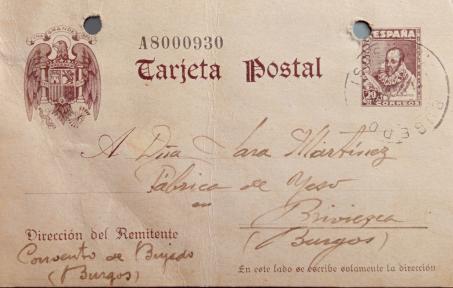 A8000930
Tarjeta Postal
ESPAÑA
CORREOS
A Dña Sara Martínez
Fábrica de Yeso
en
Briviesca
(Burgos)
Dirección del Remitente
Convento de Bujedo
(Burgos)
En este lado se escribe solamente la dirección